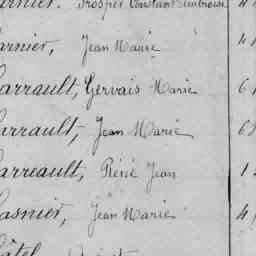 Prosper Constant Ambroise 4
arnier, Jean Marie 4
arrault, Gervais Marie 6
arrault, Jean Marie 6
arreault, Réné Jean 1
asnier, Jean Marie 4
âtel